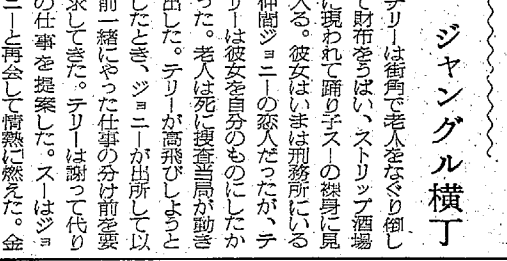 ジャングル横丁
テリーは街角で老人をなぐり倒し
て財布をうばい、ストリップ酒場
に現われて踊り子スーの裸身に見
入る。彼女はいまは刑務所にいる
仲間ジョニーの恋人だったが、テ
リーは彼女を自分のものにしたか
った。老人は死に捜査当局が動き
出した。テリーが高飛びしようと
したとき、ジョニーが出所して以
前一緒にやった仕事の分け前を要
求してきた。テリーは謝って代り
の仕事を提案した。スーはジョ
ニーと再会して情熱に燃えた。金